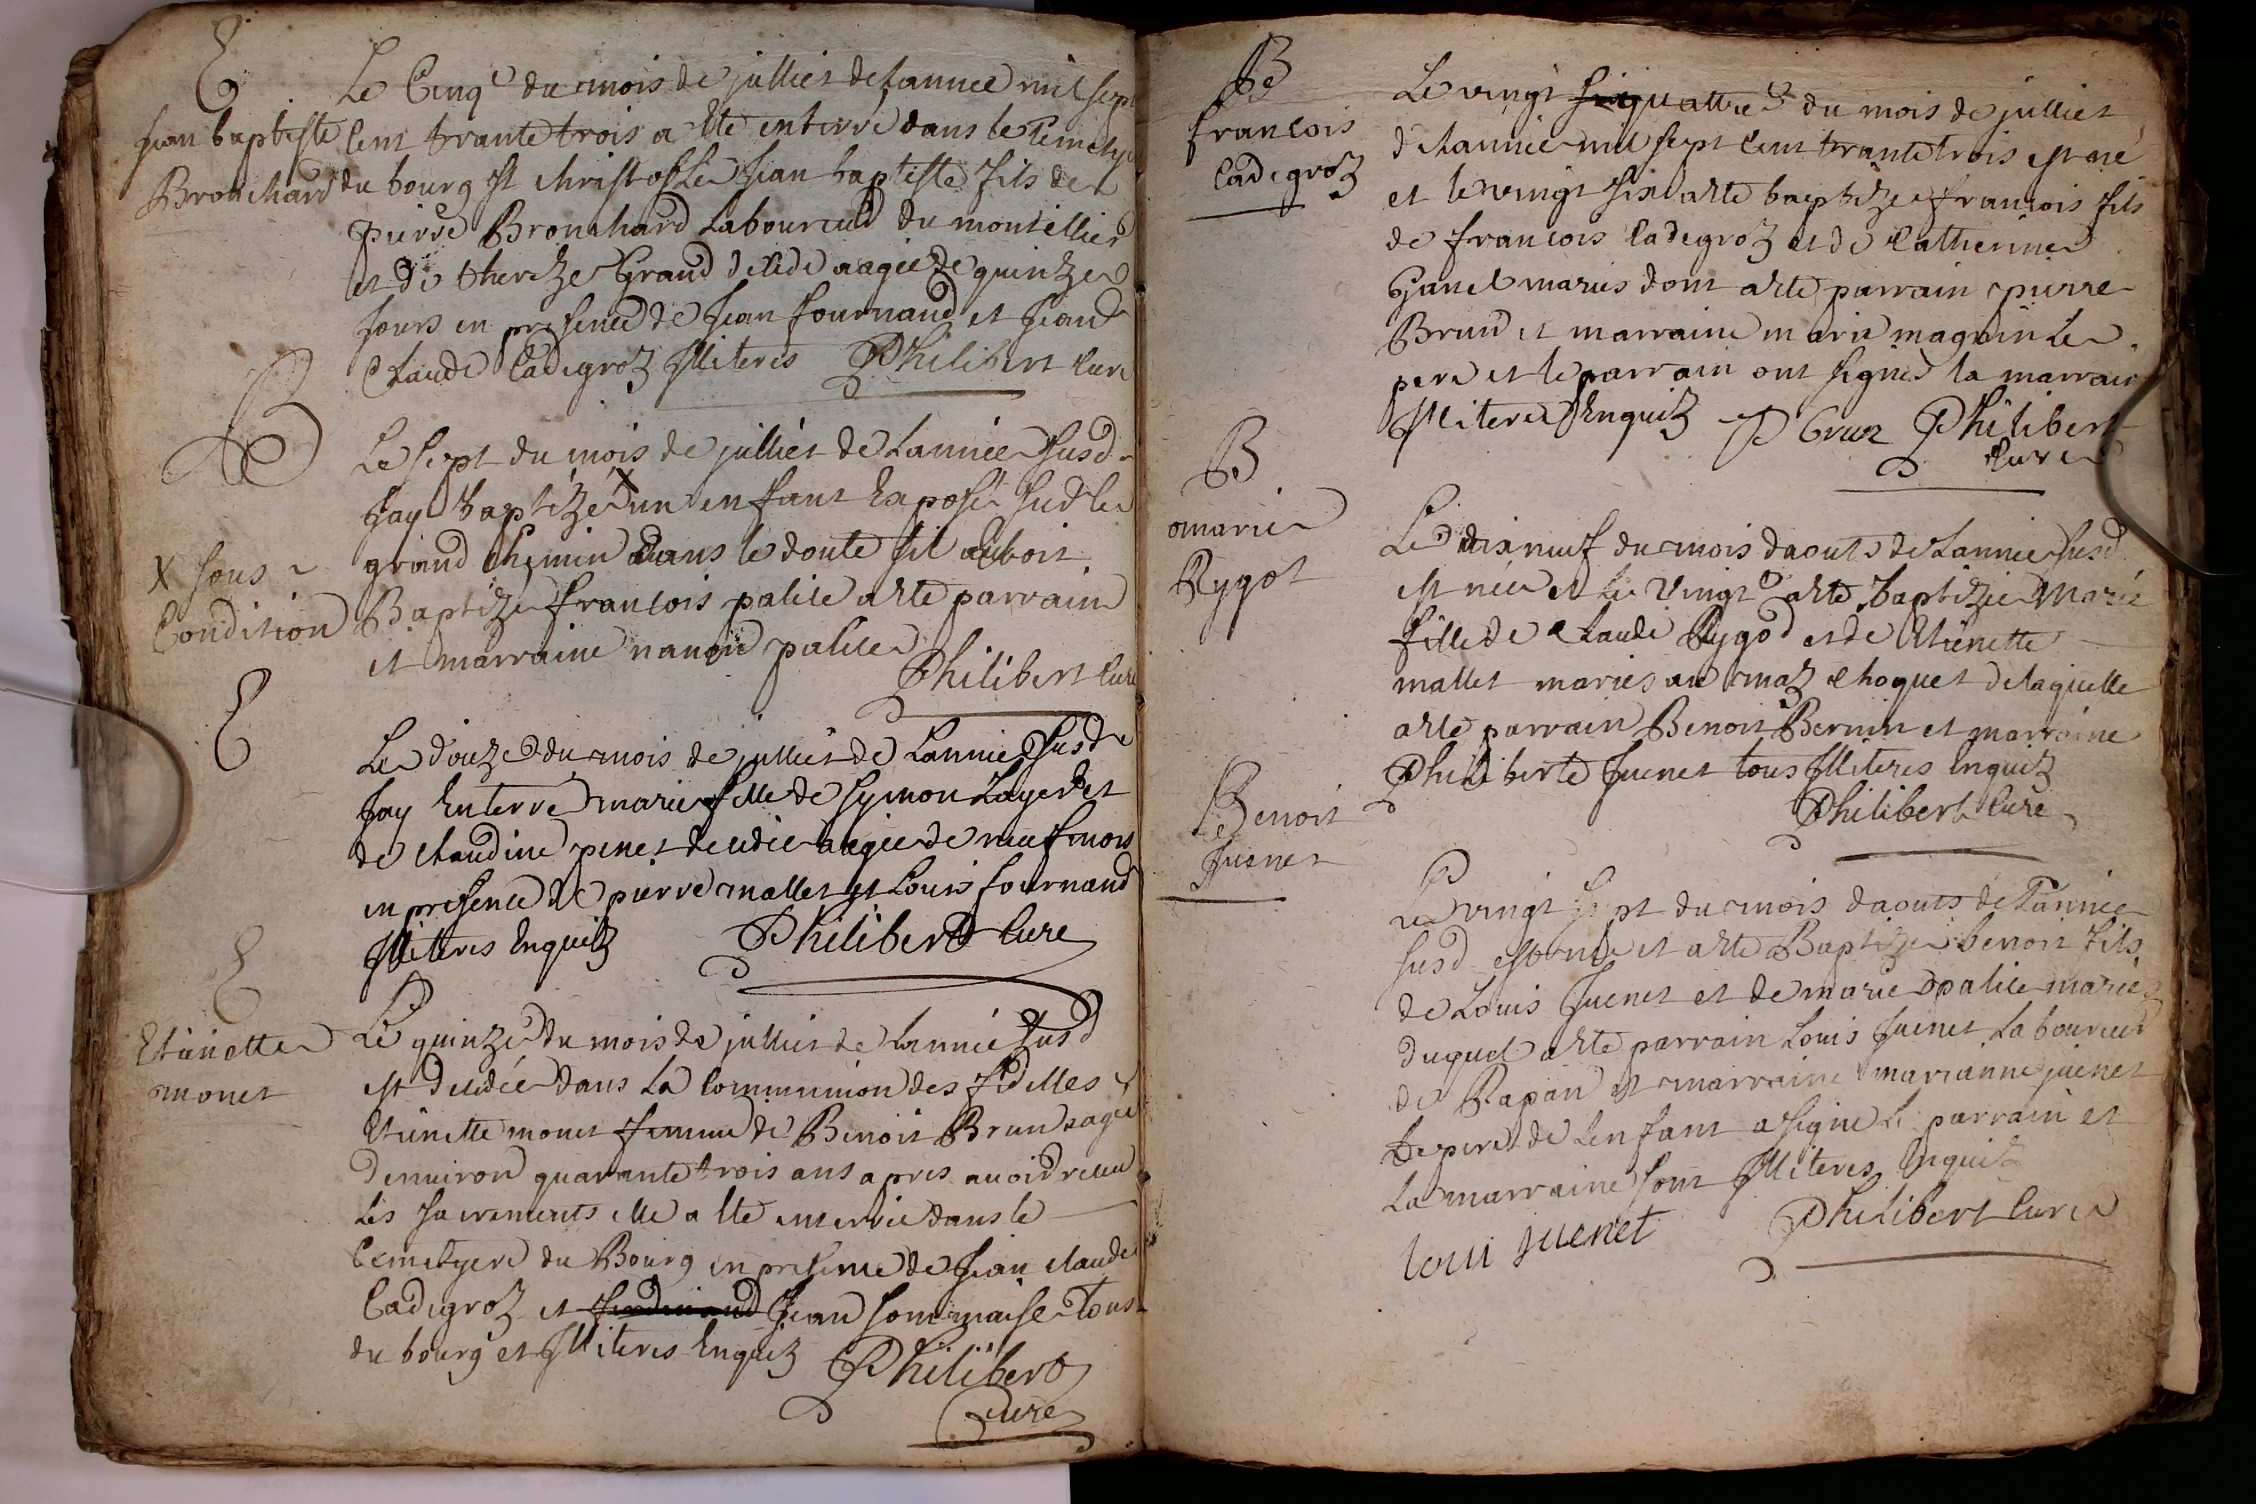 E
Jean baptiste
Bronchard
Le Cinqe du mois de julliet de lannee mil sept
Cent trante trois a ete enterré dans le Cemetye
du bourg st christofle Jean baptiste fils de
pierre Bronchard Laboureur du montellier
et de therèze Grand decedé aagée de quinze
jours en presence de Jean fournand et Jean
Claude Cadegroz Illiteres Philibert Curé
B
X sous
Condition
Le sept du mois de julliet de Lannée susd
jay baptizé X un enfant Exposé sur le
grand chemin dans le doute sil etoit
Baptizé francois palice a ete parrain
et marraine nanon palice
Philibert Curé
E
Le douze du mois de julliet de Lannée susd
jay Enterré marie fille de symon Layer et
de claudine penet decedée aagée de neuf mois
en presence de pierre mallet et Louis fournand
Illiteres Enquiz Philibert Curé
E
Etiénette
monet
Le quinze du mois de julliet de Lannée susd
est decedée dans La Communion des fidelles
Etiénette monet femme de Benoit Brun aagée
denuiron quarante trois ans apres auoir receu
Les sacrements elle a ete enterrée dans le
Cemetyere du Bourg en presence de Jean claude
Cadegroz et Jean sommaise tous
du bourg et Illiteres Enquiz Philibert
Curé
B
francois
Cadegroz
Le vingt quattre du mois de julliet
de lannée mil sept Cent trante trois est né
et le vingt six a ete baptizé francois fils
de francois Cadegroz et de Catherine
Ganet mariés dont a ete parrain pierre
Brun et marraine marie magnin Le
pere et le parrain ont signés la marrain
Illiteré Enquiz P Brun Philibert
Curé
B
marie
Rygot
Le dix neuf du mois daouts de Lannée susd
est née et le vingt a ete baptizée Marie
fille de claude Rygod et de Etiénette
mallet mariés au maz choquet de laquelle
a ete parrain Benoit Bernin et marraine
Philiberte Juenet tous Illiteres Enquiz
Philibert Curé
B
Benoit
Juenet
Le vingt sept du mois daouts de Lannée
susd est né et a ete Baptizé benoit fils
de Louis Juenet et de marie palice mariés
duquel a ete parrain Louis Juenet Laboureur
de Rapan et marraine marianne juenet
Le pere de Lenfant a signé Le parrain et
La marraine sont Illiteres Enquiz
loui juenet Philibert Curé